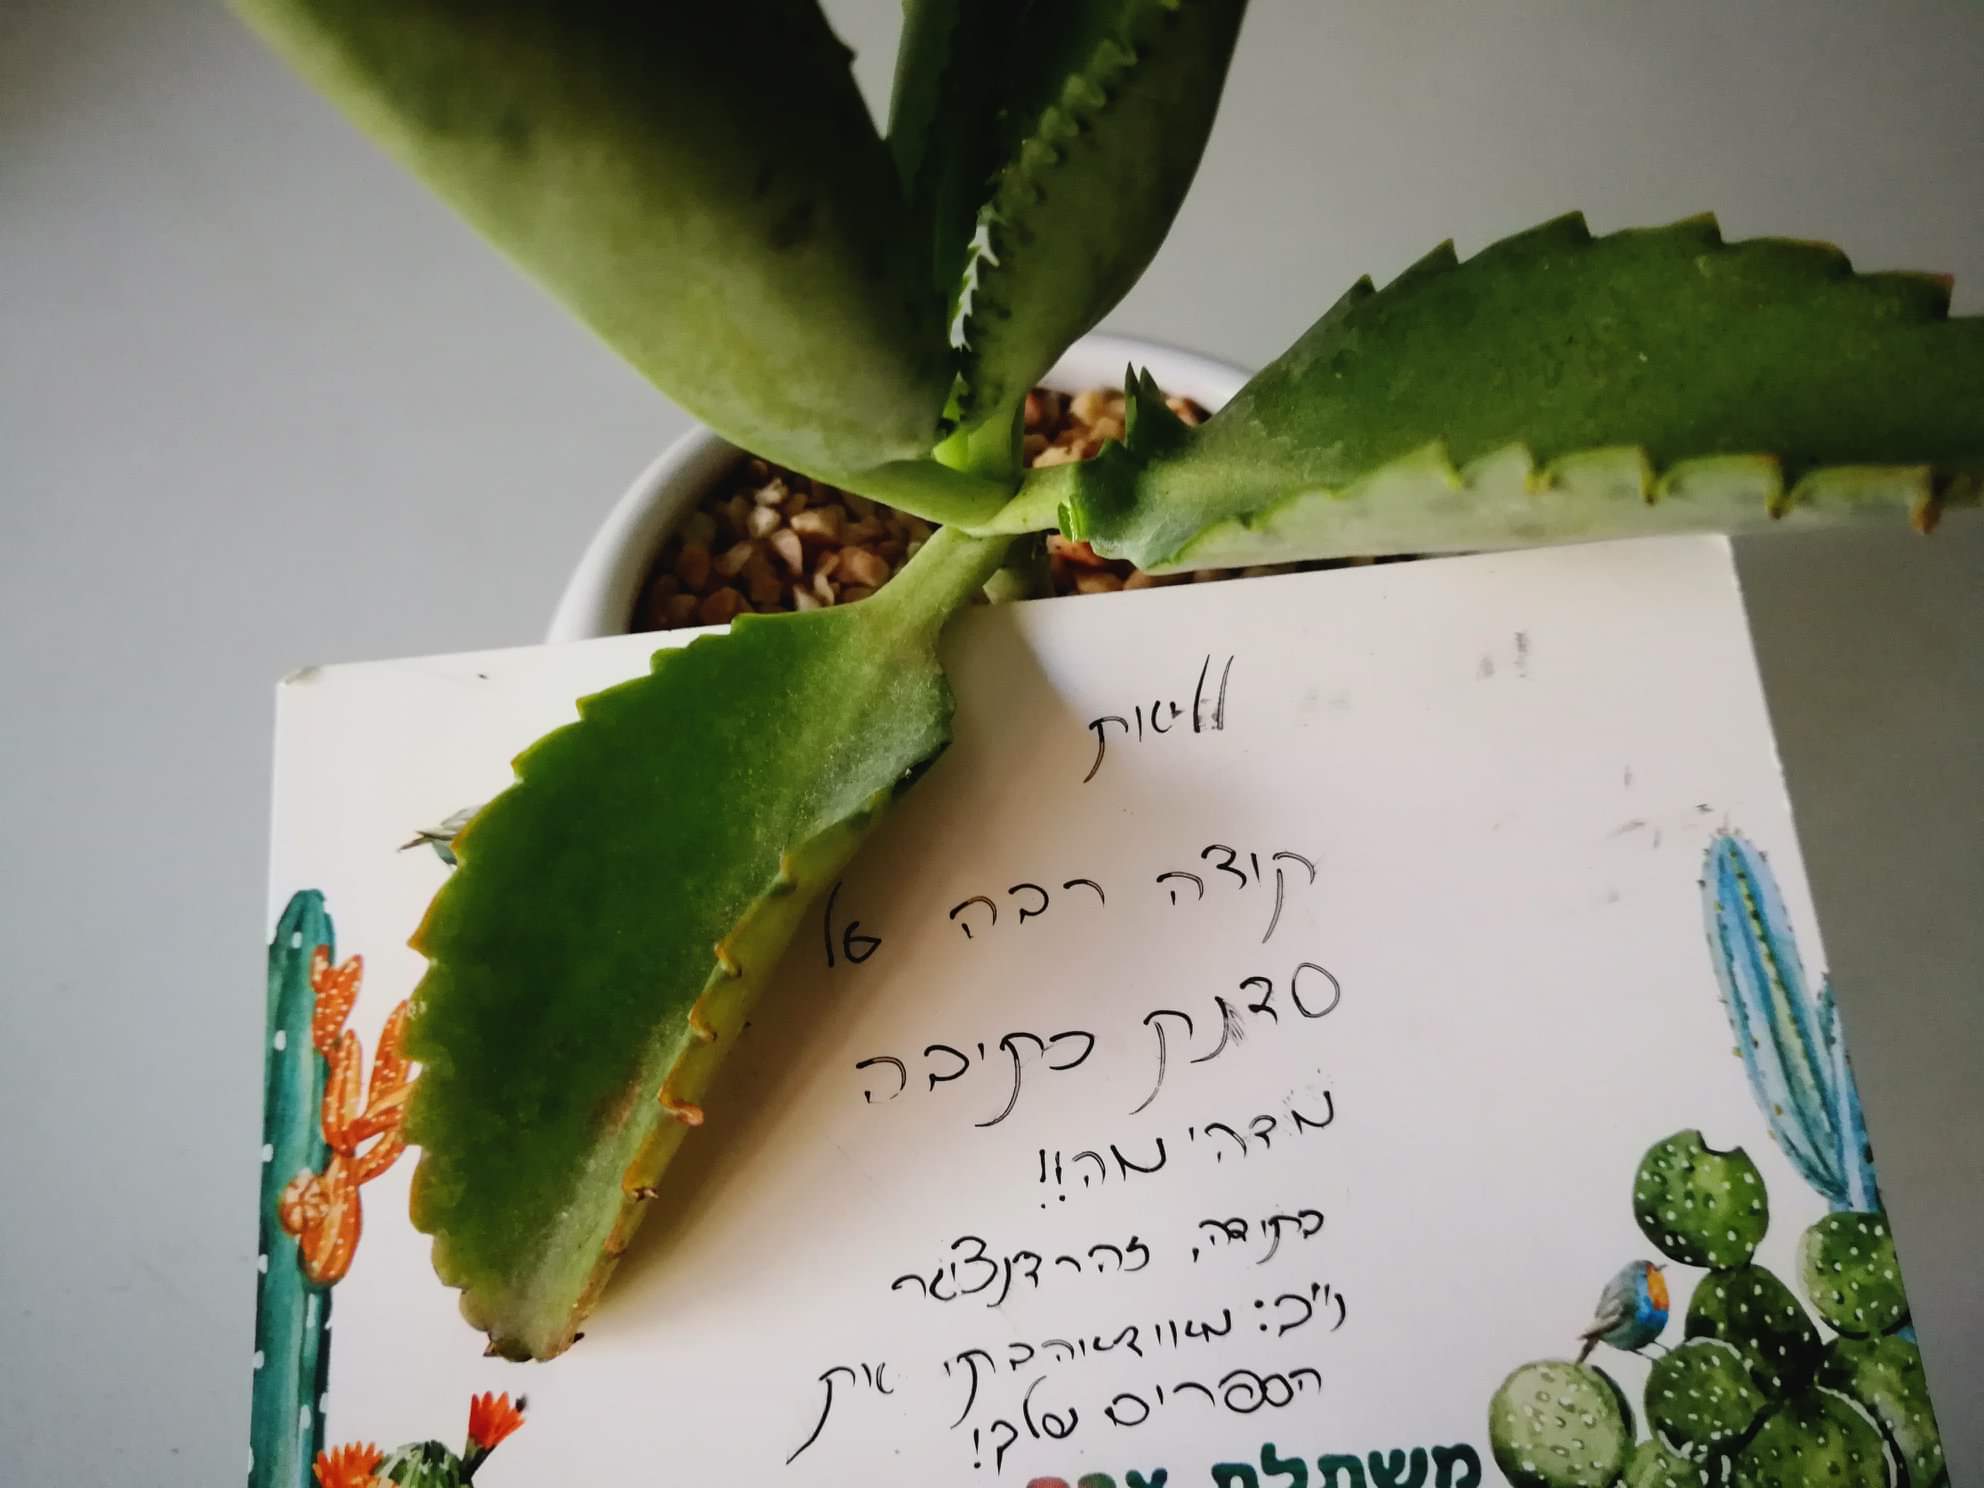 תודה רבה על
סדנת כתיבה
מדהימה!!
בתודה, זהר דנציגר
נ"ב: מאוד אהבתי את
הספרים שלך!
משתלת